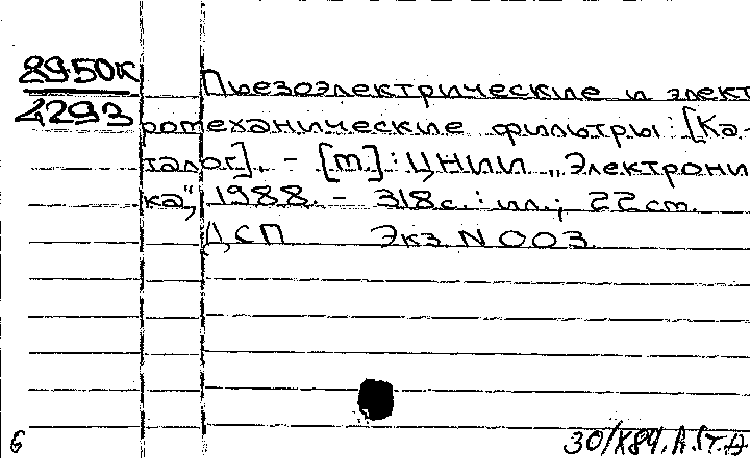 8950к
4293
Пьезоэлектрические и элект
ромеханические фильтры: [Ка-
талог]. - [м]: ЦНИИ „Электрони
ка", 1988. - 318с.: ил.; 22 см.
ДСП Экз N 003
6
30/X89.